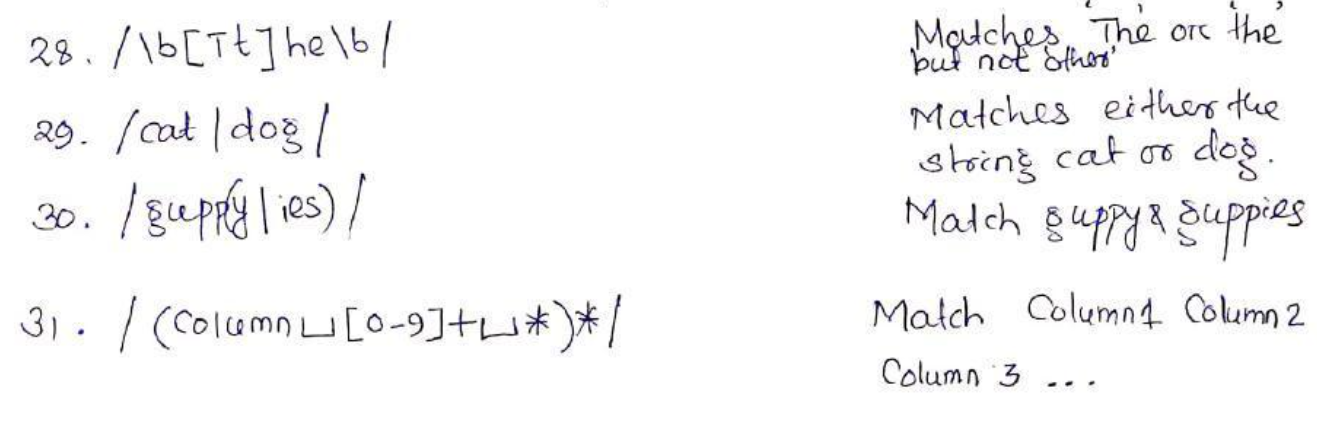 28. /\b[Tt]he\b/ Matches 'The' or 'the'
but not other'
29. /cat|dog/ Matches either the
string cat or dog.
30. /gupp(y|ies)/ Match guppy & guppies
31. /(Column␣[0-9]+␣*)*/ Match Column 1 Column 2
Column 3 ...